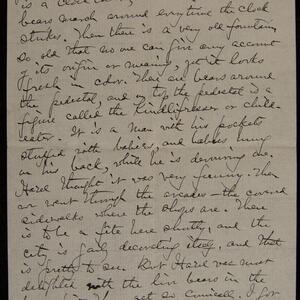 is a
bears march around everytime the clock
strikes. Then there is a very old fountain,
so old that no one can give any account
of its origin or meaning, yet it looks
fresh in color. There are bears around
the pedestal, and on top the pedestal is a
figure called the Kindlifresser or child-
eater. It is a man with his pockets
stuffed with babies, and babies hung
on his back, while he is devouring one.
Hazel thought it was very funny. Then
we went through the arcades – the covered
sidewalks where the shops are. There
is to be a fete here shortly, and the
city is gaily decorating itself, and that
is pretty to see. But Hazel was most
delighted with the live bears in the
act so comically. I got